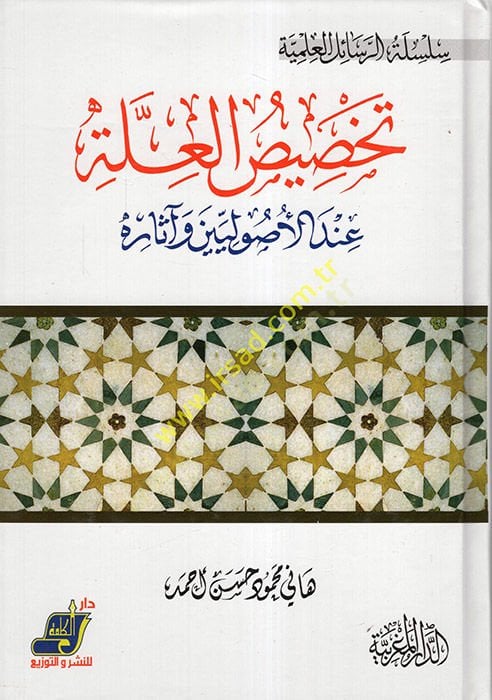 سلسلة الرسائل العلمية
تخصيص العلة
عند الأصوليين وآثاره
www.irsad.com.tr
هاني محمود حسن أحمد
دار
الكلمة
للنشر والتوزيع
الدار المغربية